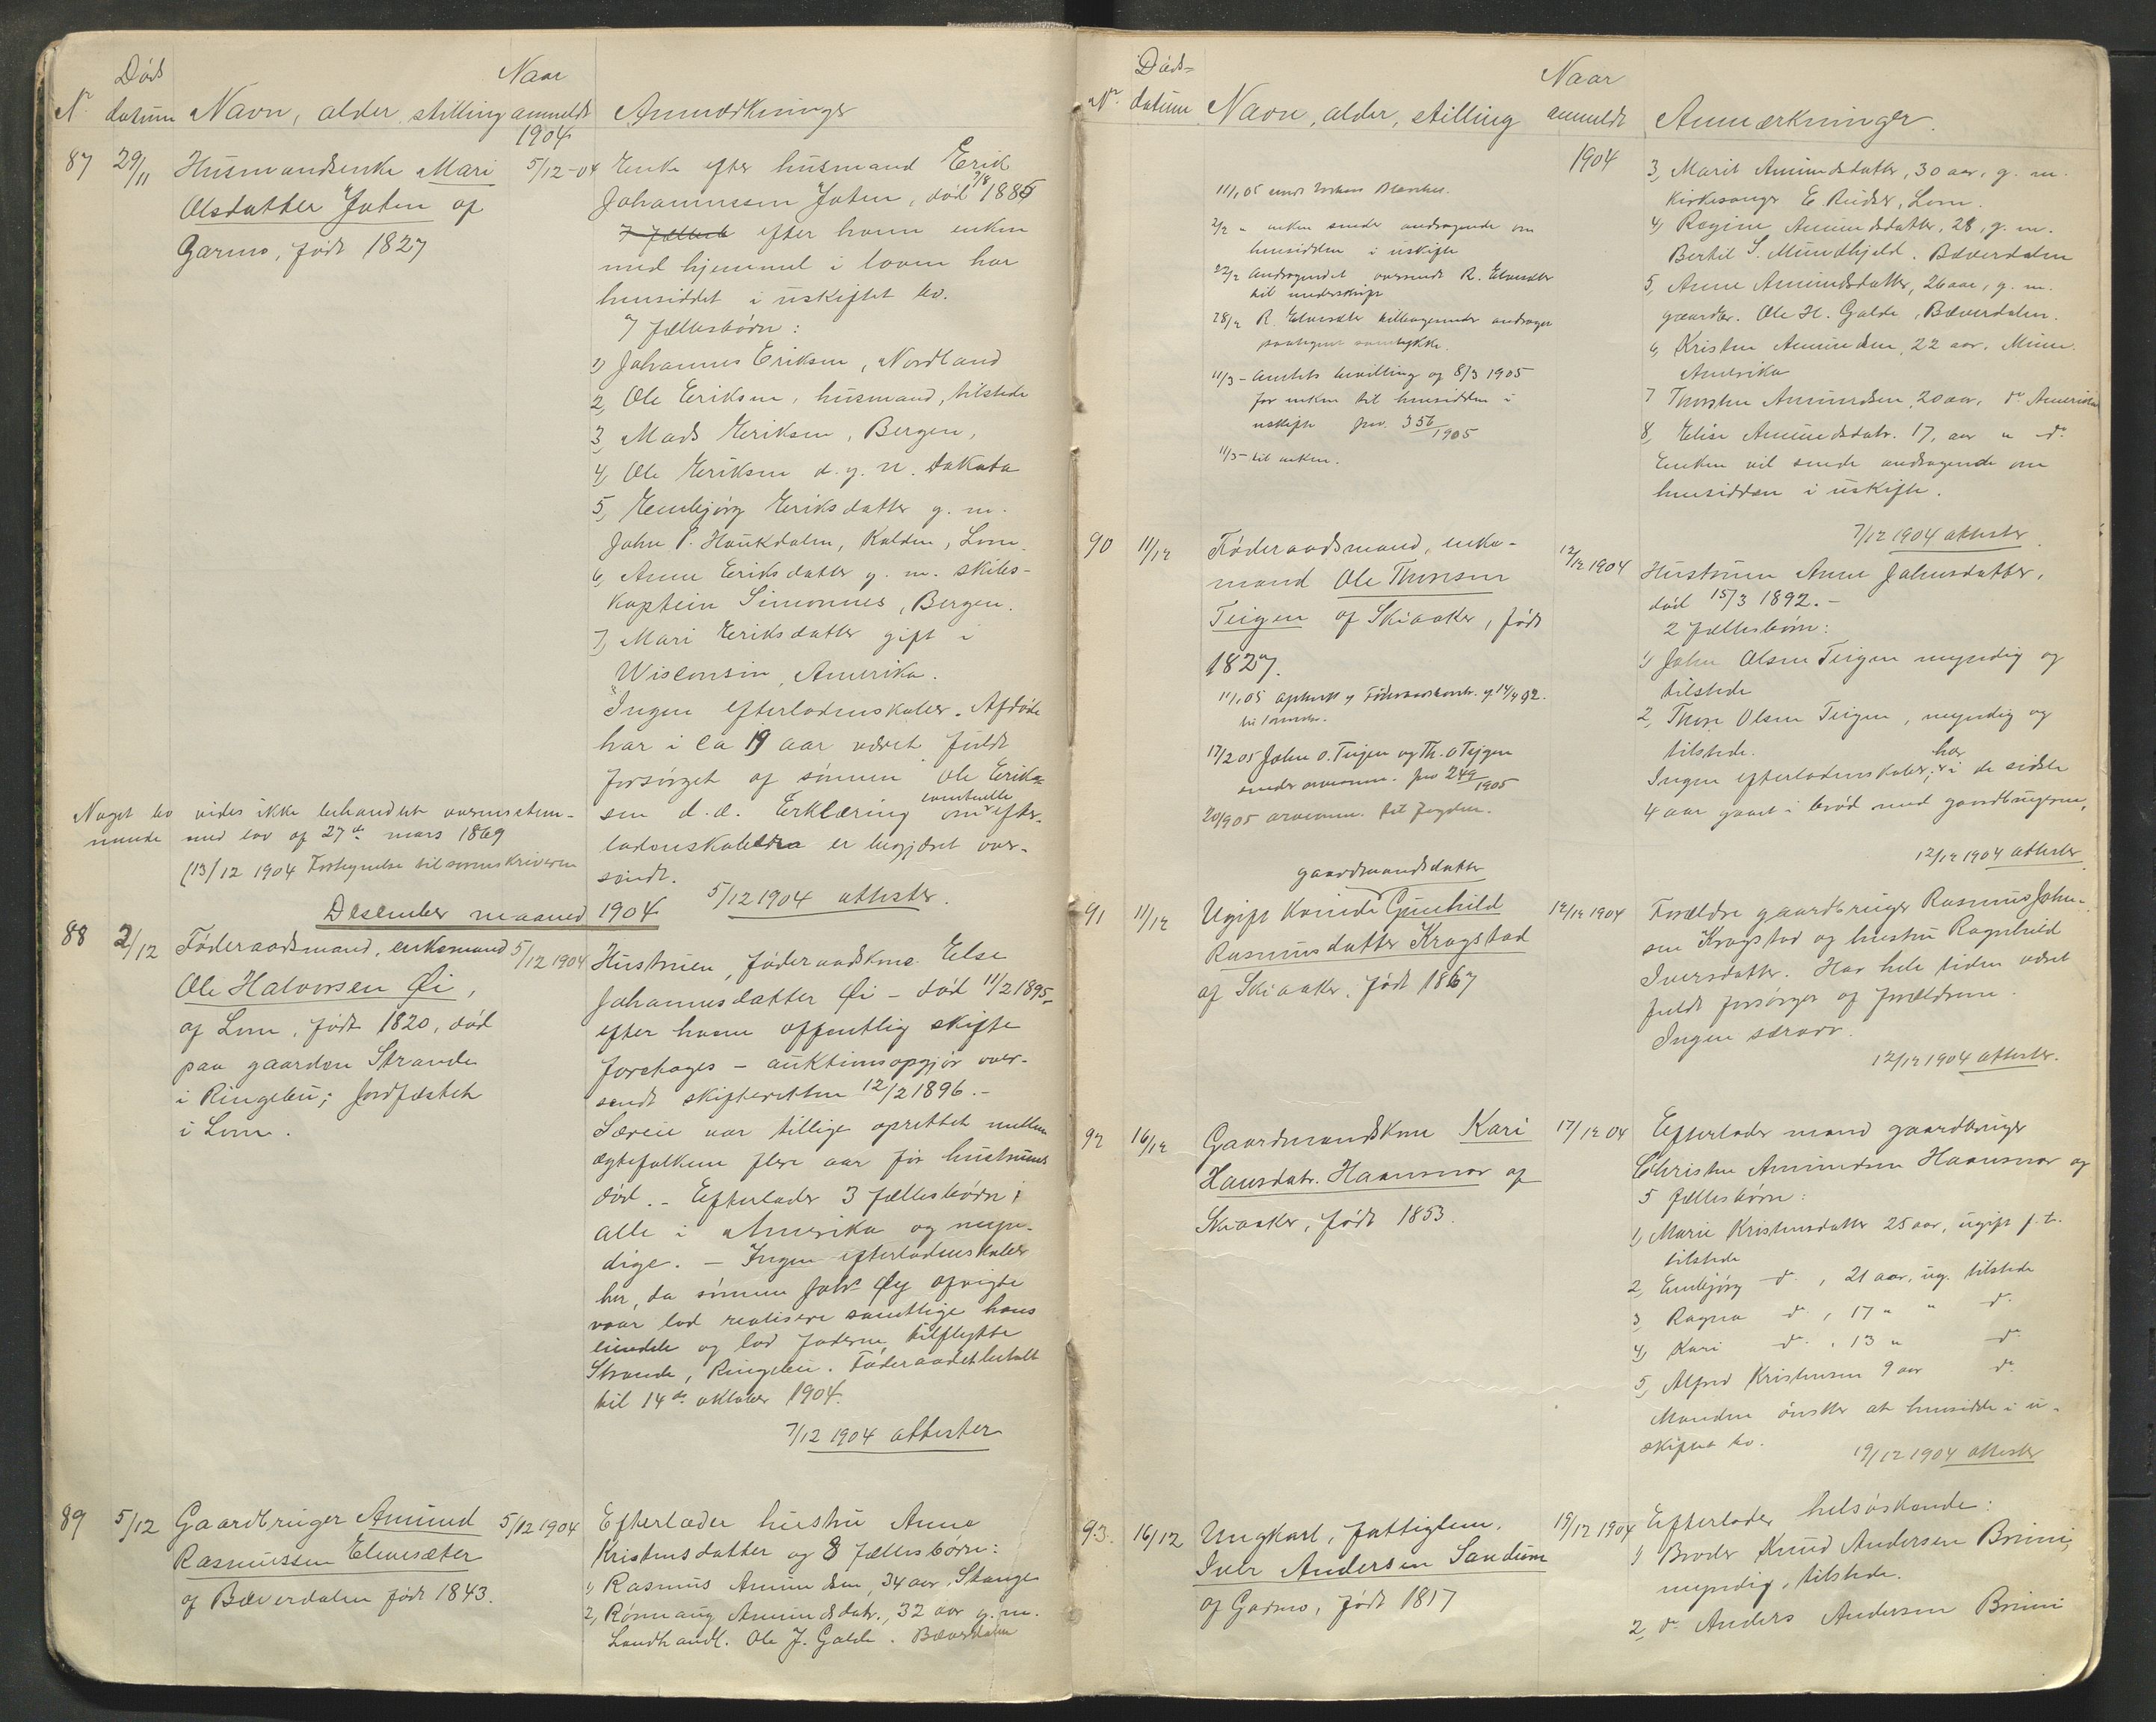 Nr
Døds
datum
Navn, alder, stilling
Naar
anmeldt
Anmærkninger
1904
87
29/11
Husmandsenke Mari
Olsdatter Joten af
Garmo, født 1827
5/12-04
Enke efter husmand Erik
Johannessen Joten, død 7/8 1885
7 fælles efter ham enken
med hjemmel i loven har
hensiddet i uskiftet bo.
7 fællesbørn:
1, Johannes Eriksen, Nordland
2, Ole Eriksen, husmand, tilstede
3, Mads Eriksen, Bergen,
4, Ole Eriksen d. y. N. Dakota
5, Embjørg Eriksdatter g. m.
John P. Haukdalen, Kolden, Lom.
6, Anne Eriksdatter g. m. skibs-
kaptein Simonnes, Bergen.
7, Mari Eriksdatter gift i
Wisconsin, Amerika.
Ingen efterladenskaber. Afdøde
har i ca 19 aar været fuldt
forsørget af sønnen Ole Erik-
sen d. æ. Erklæring om eventuelle efter-
ladenskaber er begjæret over-
sendt.
5/12 1904 attester.
Noget bo vides ikke behandlet overensstem-
mende med lov af 27de mars 1869
(13/12 1904 Forespørgelse til sorenskriveren
Desember maaned 1904
88
2/12
Føderaadsmand, enkemand
Ole Halvorsen Øi,
af Lom, født 1820, død
paa gaarden Strande
i Ringebu; jordfæstet
i Lom.
5/12 1904
Hustruen, føderaadskone Else
Johannesdatter Øi - død 11/2 1895,
efter hvem offentlig skifte
foretoges - auktionsopgjør over-
sendt skifteretten 12/2 1896.-
Særeie var tillige oprettet mellem
ægtefolkene flere aar før hustruens
død. - Efterlader 3 fællesbørn;
alle i Amerika og myn-
dige. - Ingen efterladenskaber
her, da sønnen Johs Øy afvigte
vaar lod realisere samtlige hans
eiendele og lod faderen tilflytte
Strande, Ringebu. Føderaadet betalt
til 14de oktober 1904.
7/12 1904 attester
89
5/12
Gaardbruger Amund
Rasmussen Elvesæter
af Bæverdalen født 1843.
5/12 1904
Efterlader hustru Anne
Kristensdatter og 8 fællesbørn:
1, Rasmus Amundsen, 34 aar, Stange
2, Rønnaug Amundsdatr., 32 aar g. m.
Landhandl. Ole J. Galde. Bæverdalen
Nr.
Døds-
datum
Navn, alder, stilling
Naar
anmeldt
Anmærkninger.
1904
11/1 05 sendt
2/2 " enken sender andragende om
hensidden i uskifte
22/2 Andragendet oversendt R. Elvesæter
til underskrift
28/2 R. Elvesæter tilbagesender andragen
paategnet samtykke.
11/3 - Amtets bevilling af 8/3 1905
for enken til hensidden i
uskifte jnr. 356/1905
11/3 - til enken.
3, Marit Amundsdatter, 30 aar, g. m.
kirkesanger E. Rudser, Lom.
4, Regine Amundsdatter, 28, g. m.
Bertil S. Mundhjeld. Bæverdalen
5, Anne Amundsdatter, 26 aar, g. m.
gaardbr. Ole H. Galde, Bæverdalen.
6, Kristen Amundsen, 22 aar. Minn.
Amerika
7 Thorsten Amundsen, 20 aar, do Amerika
8, Elise Amundsdatr. 17, aar " do
Enken vil sende andragende om
hensidden i uskifte.
7/12 1904 attester.
90
11/12
Føderaadsmand, enke-
mand Ole Thorsen
Teigen af Skiaaker, født
1827.
12/12 1904
11/1 05 Afskrift af Føderaadskontr. af 14/4 92.
til
17/2 05 John O. Teigen og Th. O Teigen
sender jnr 249/1905
20/9 05 til fogden.
Hustruen Anne Johnsdatter,
død 15/3 1892.-
2 fællesbørn:
1, John Olsen Teigen myndig og
tilstede
2, Thor Olsen Teigen, myndig og
tilstede.
Ingen efterladenskaber, har i de sidste
4 aar gaaet i brød med gaardbrugerne,
12/12 1904 attester
91
11/12
gaardmandsdatter
Ugift kvinde Gunhild
Rasmusdatter Krogstad
af Skiaaker. født 1867
12/12 1904
Forældre gaardbruger Rasmus John-
sen Krogstad og hustru Ragnhild
Iversdatter. Har hele tiden været
fuldt forsørget af forældrene.
Ingen særarv.
12/12 1904 attester.
92
16/12
Gaardmandskone Kari
Hansdatr. Haansnar af
Skiaaker, født 1853.
17/12 04
Efterlader mand gaardbruger
Christen Amundsen Haansnar og
5 fællesbørn:
1, Marie Kristensdatter 25 aar, ugift p. t.
tilstede
2, Embjørg do, 21 aar, ug. tilstede
3, Ragna do, 17 " " do
4, Kari do, 13 " do
5, Alfred Kristensen 9 aar do
Manden ønsker at hensidde i u-
skiftet bo.
19/12 1904 attester
93.
16/12
Ungkarl, fattiglem.
Iver Andersen Sandum
af Garmo, født 1817
19/12 1904
Efterlader helsøskende:
1, Broder Knud Andersen Brimi,
myndig, tilstede.
2, do Anders Andersen Brimi